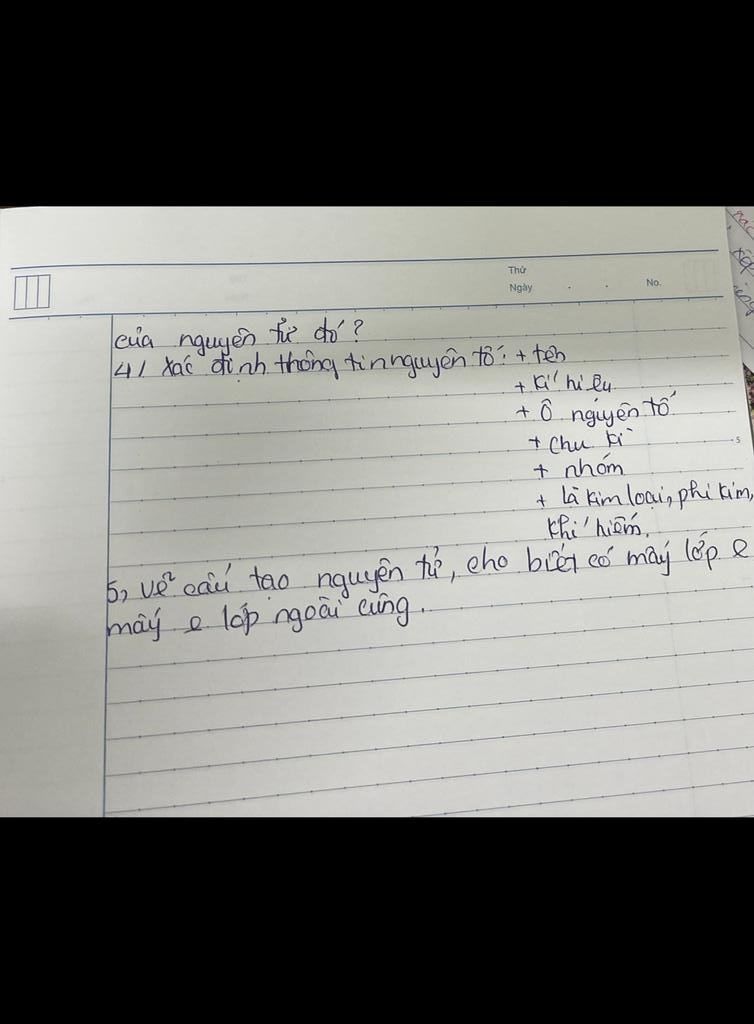 Thứ
Ngày . . No.
của nguyên tử đó?
4/ Xác định thông tin nguyên tố: + tên
+ kí hiệu
+ Ô nguyên tố
+ chu kì
+ nhóm
+ là kim loại, phi kim,
khí hiếm.
5, vẽ cấu tạo nguyên tử, cho biết có mấy lớp e
mấy e lớp ngoài cùng.